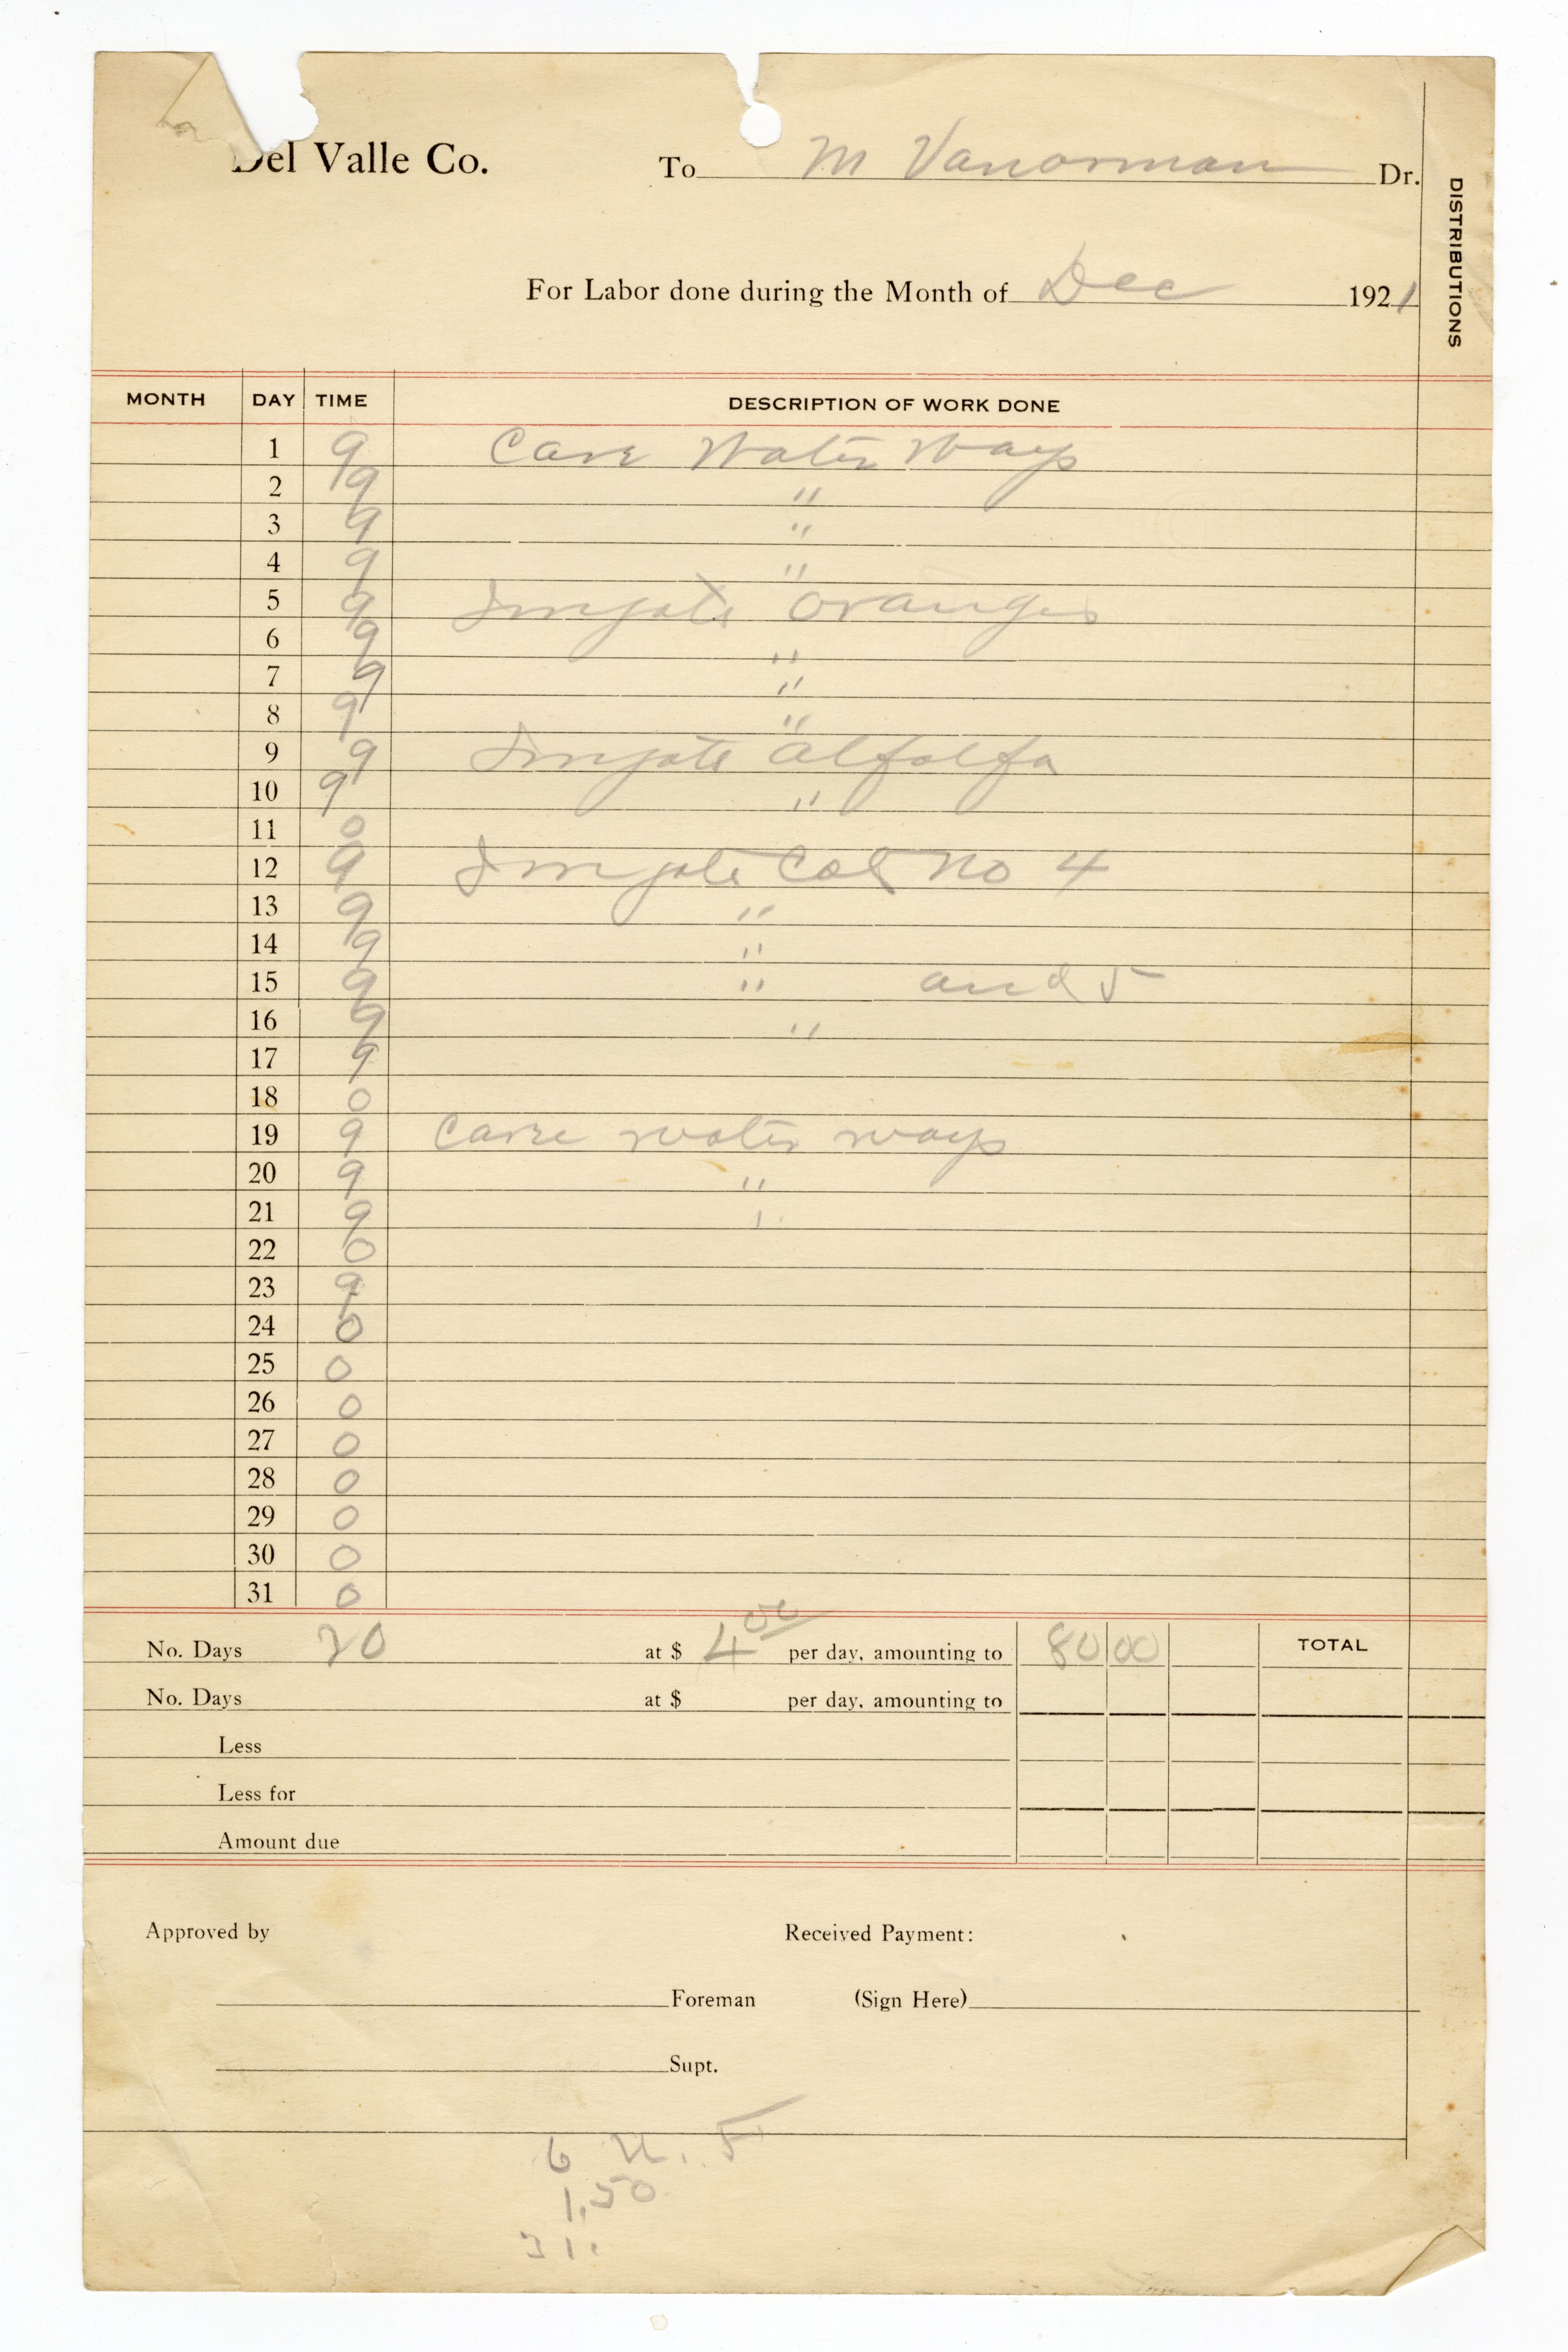 Del Valle Co. To M Vanorman Dr.
DISTRIBUTIONS
For Labor done during the Month of Dec 1921
MONTH DAY TIME DESCRIPTION OF WORK DONE
1 9 Care Water Ways
2 9 "
3 9 "
4 9 "
5 9 Irrigate oranges
6 9 "
7 9 "
8 9 "
9 9 Irrigate alfalfa
10 9 "
11 0
12 9 Irrigate No 4
13 9 "
14 9 "
15 9 " and 5
16 9 "
17 9
18 0
19 9 Care water ways
20 9 "
21 9 "
22 0
23 9
24 0
25 0
26 0
27 0
28 0
29 0
30 0
31 0
No. Days 20 at $ 4 00 per day, amounting to 80 00 TOTAL
No. Days at $ per day, amounting to
Less
Less for
Amount due
Approved by Received Payment:
Foreman (Sign Here)
Supt.
1.50